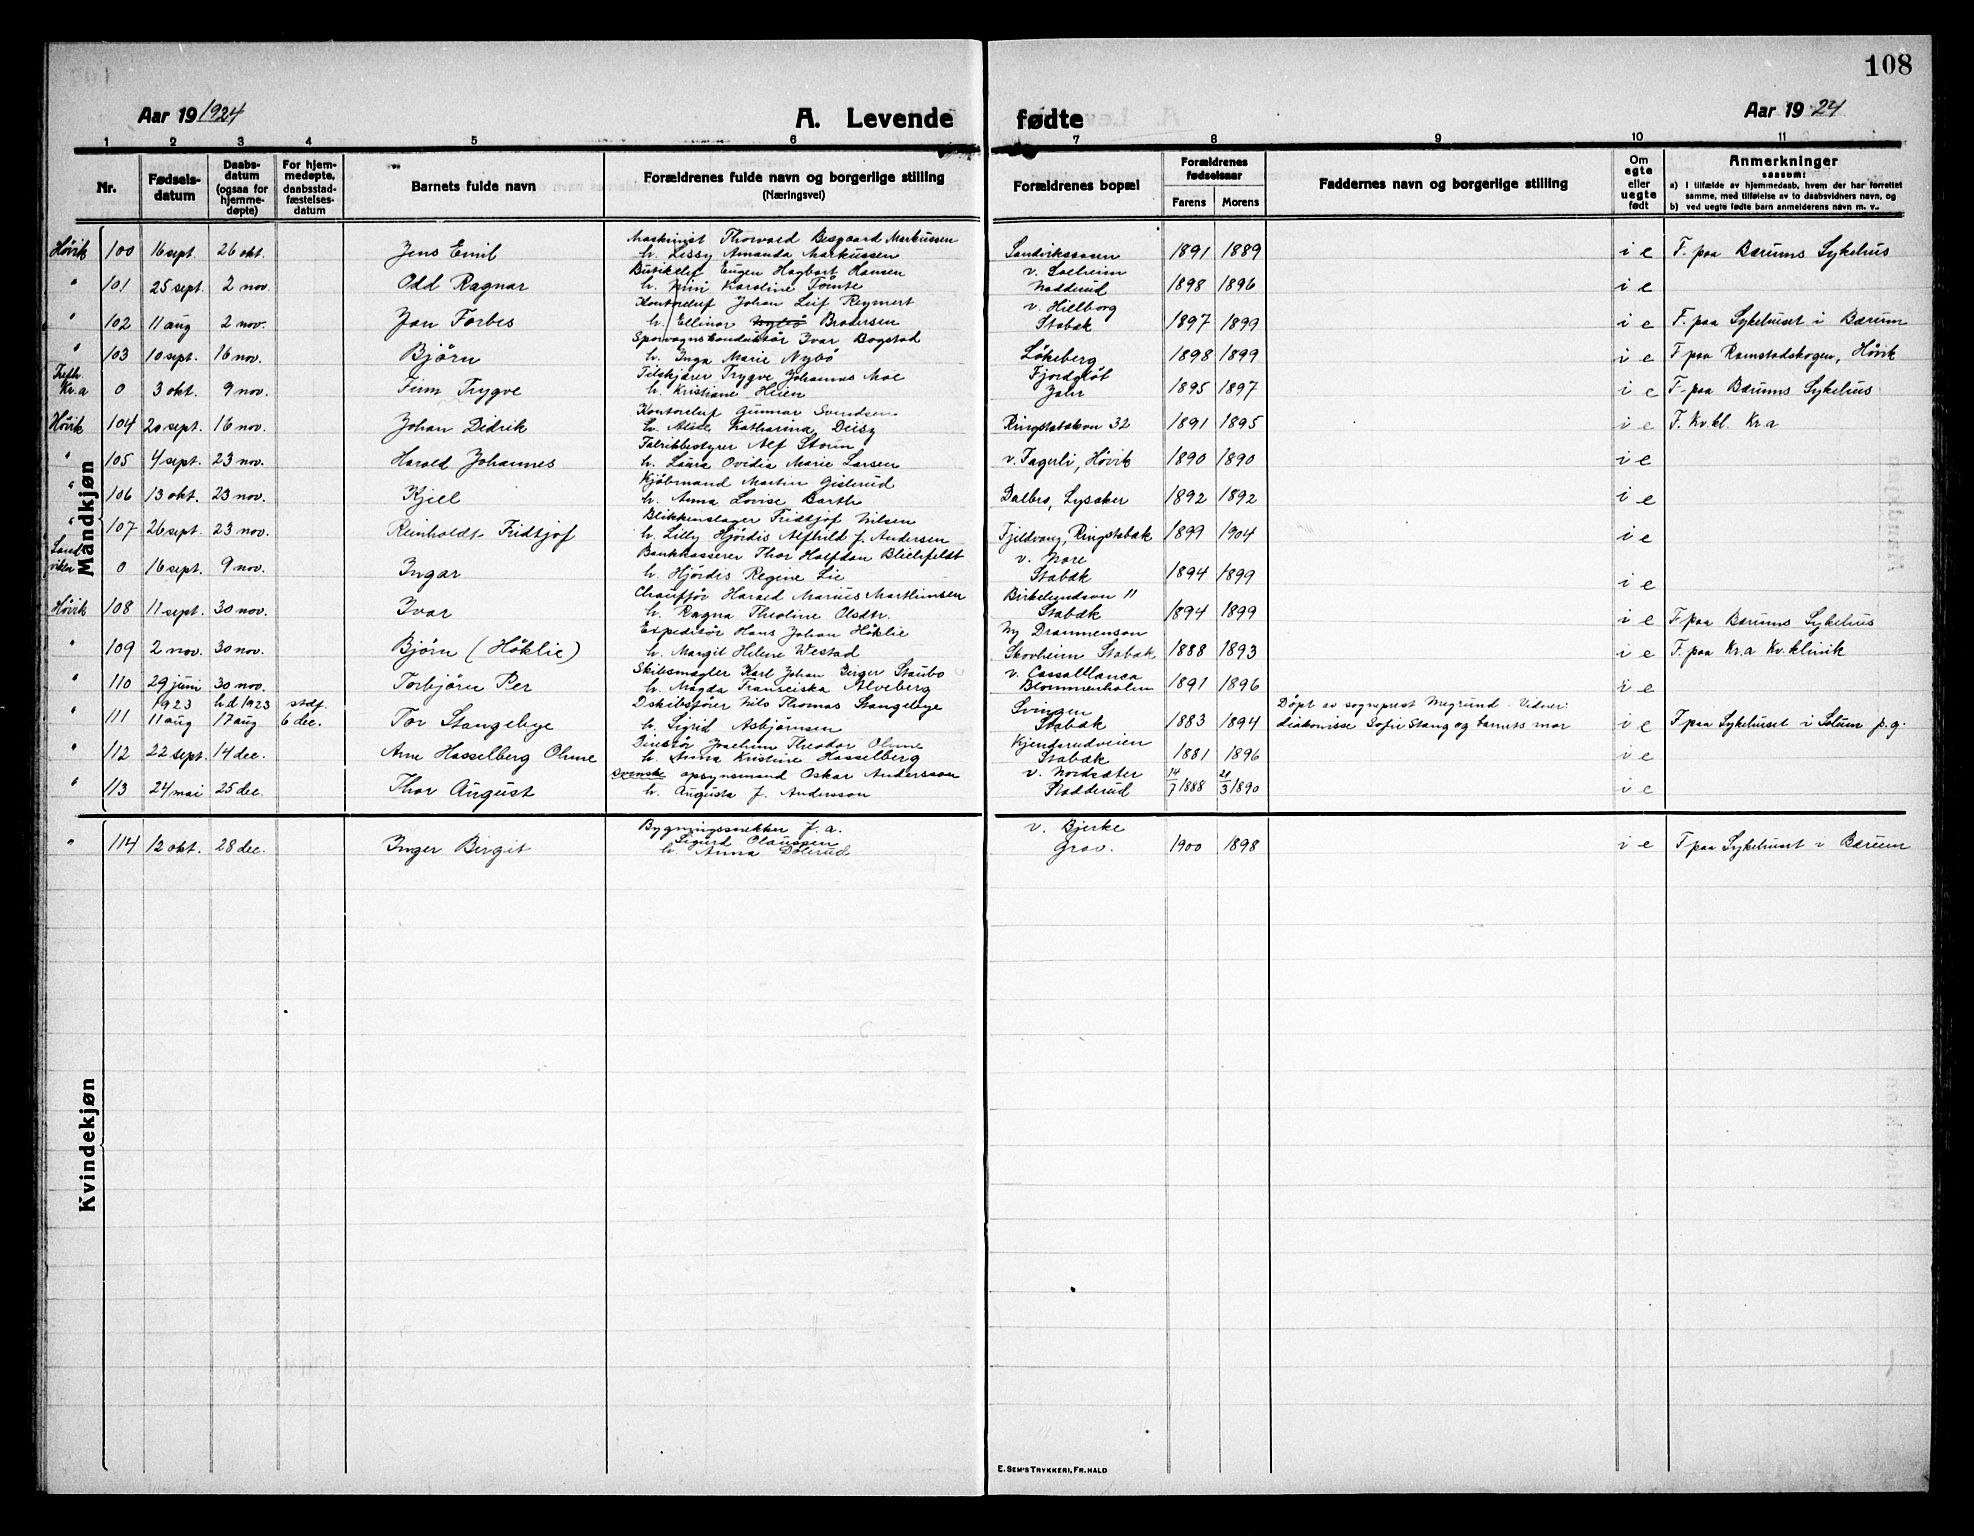 108
Aar 19 1924 A. Levende fødte Aar 19 24
1 2 3 4 5 6 7 8 9 10 11
Nr.
Fødsels-
datum
Daabs-
datum
(ogsaa for
hjemme-
døpte)
For hjem-
medøpte,
daabsstad-
fæstelses-
datum
Barnets fulde navn
Forældrenes fulde navn og borgerlige stilling
(Næringsvei)
Forældrenes bopæl
Forældrenes
fødselsaar
Farens Morens
Faddernes navn og borgerlige stilling
Om
egte
eller
uegte
født
Anmerkninger
saasom:
a) I tilfælde av hjemmedaab, hvem der har forrettet
samme, med tilføielse av to daabsvidners navn, og
b) ved uegte fødte barn anmelderens navn m. v.
Mandkjøn
Høvik 100 16 sept. 26 okt. Jens Emil Maskinist Thorvald Besgaard Markussen
h. Lissy Amanda Markussen 1891 1889 i e F. paa Bærums Sykehus
" 101 25 sept. 2 nov. Odd Ragnar Eugen Hagbart Hansen
h. Karoline Tømte v. Solheim
Nadderud 1898 1896 i e
" 102 11 aug 2 nov. Jan Forbes Johan Leif Reymert
h. Ellinor Nybø Brodersen v. Hielborg
Stabæk 1897 1899 i e F. paa Sykehuset i Bærum
" 103 10 sept. 16 nov. Bjørn Sporvognskonduktør Ivar Bogstad
h. Inga Marie Nybø Løkeberg 1898 1899 i e F paa Ramstadskogen, Høvik
Kr.a 0 3 okt. 9 nov. Finn Trygve Tilskjærer Trygve Johannes Moe
h. Kristiane Heien Fjordgløt
Jahr 1895 1897 i e F paa Bærums Sykehus
Høvik 104 20 sept. 16 nov. Johan Didrik Gunnar Svendsen
h. Katharina Ringstabækvn 32 1891 1895 i e F. Kv.kl. Kr.a
" 105 4 sept. 23 nov. Harald Johannes Fabrikbestyrer Alf Storm
h. Laura Ovidia Marie Larsen v. Fagerli, Høvik 1890 1890 i e
" 106 13 okt. 23 nov. Kjell Kjøbmand Martin Gislerud
h. Anna Lovise Barth Dalbro, Lysaker 1892 1892 i e
" 107 26 sept. 23 nov. Reinholdt Fridtjof Blikkenslager Fridtjof Nilsen
h. Lilly Hjørdis Alfhild J. Andersen Fjeldvang, Ringstabæk 1899 1904 i e
Sand-
viken 0 16 sept. 9 nov. Ingar Bankkasserer Thor Halfdan Blielfeldt
h. Hjørdis Regine Lie v. More
Stabæk 1894 1899 i e
Høvik 108 11 sept. 30 nov. Ivar Chauffør Harald Marius Martinsen
h. Ragna Theoline Olsdtr. Birkelundsvn 11
Stabæk 1894 1899 i e F paa Bærums Sykehus
" 109 2 nov. 30 nov. Bjørn (Høklie) Expeditør Hans Johan Høklie
h. Margit Helene Westad Ny Drammensvn
Skovheim Stabæk 1888 1893 i e F. paa Kr.a Kv.klinik
" 110 29 juni 30 nov. Torbjørn Per Skibsmægler Karl Johan Birger Staubo
h. Magda Fransiska Alveberg v. Cassablanca
Blommenholm 1891 1896 i e
" 111 1923
11 aug h.d 1923
17 aug stdf.
6 dec. Tor Stangebye Nils Thomas Stangebye
h. Sigrid Asbjørnsen Svingen
Stabæk 1883 1894 Døpt av sogneprest Megrund. Vidner:
diakonisse Sofie Stang og barnets mor i e F paa Sykehuset i Solum p.g.
" 112 22 sept. 14 dec. Arne Hasselberg Olsne Direktør Joachim Theodor Olsne
h. Anna Kristine Hasselberg Kjendsrudveien
Stabæk 1881 1896 i e
" 113 24 mai 25 dec. Thor August svenske opsynsmand Oskar Andersson
h. Augusta J. Andersson v. Nordsæter
Nadderud 14/7 1888 21/3 1890 i e
Kvindekjøn
" 114 12 okt. 28 dec. Inger Birgit Bygningssnekker f.a.
Sigurd Claussen
h. Anna Dølerud v. Bjerke
Grav. 1900 1898 i e F paa Sykehuset i Bærum
E. SEM'S TRYKKERI, FR.HALD